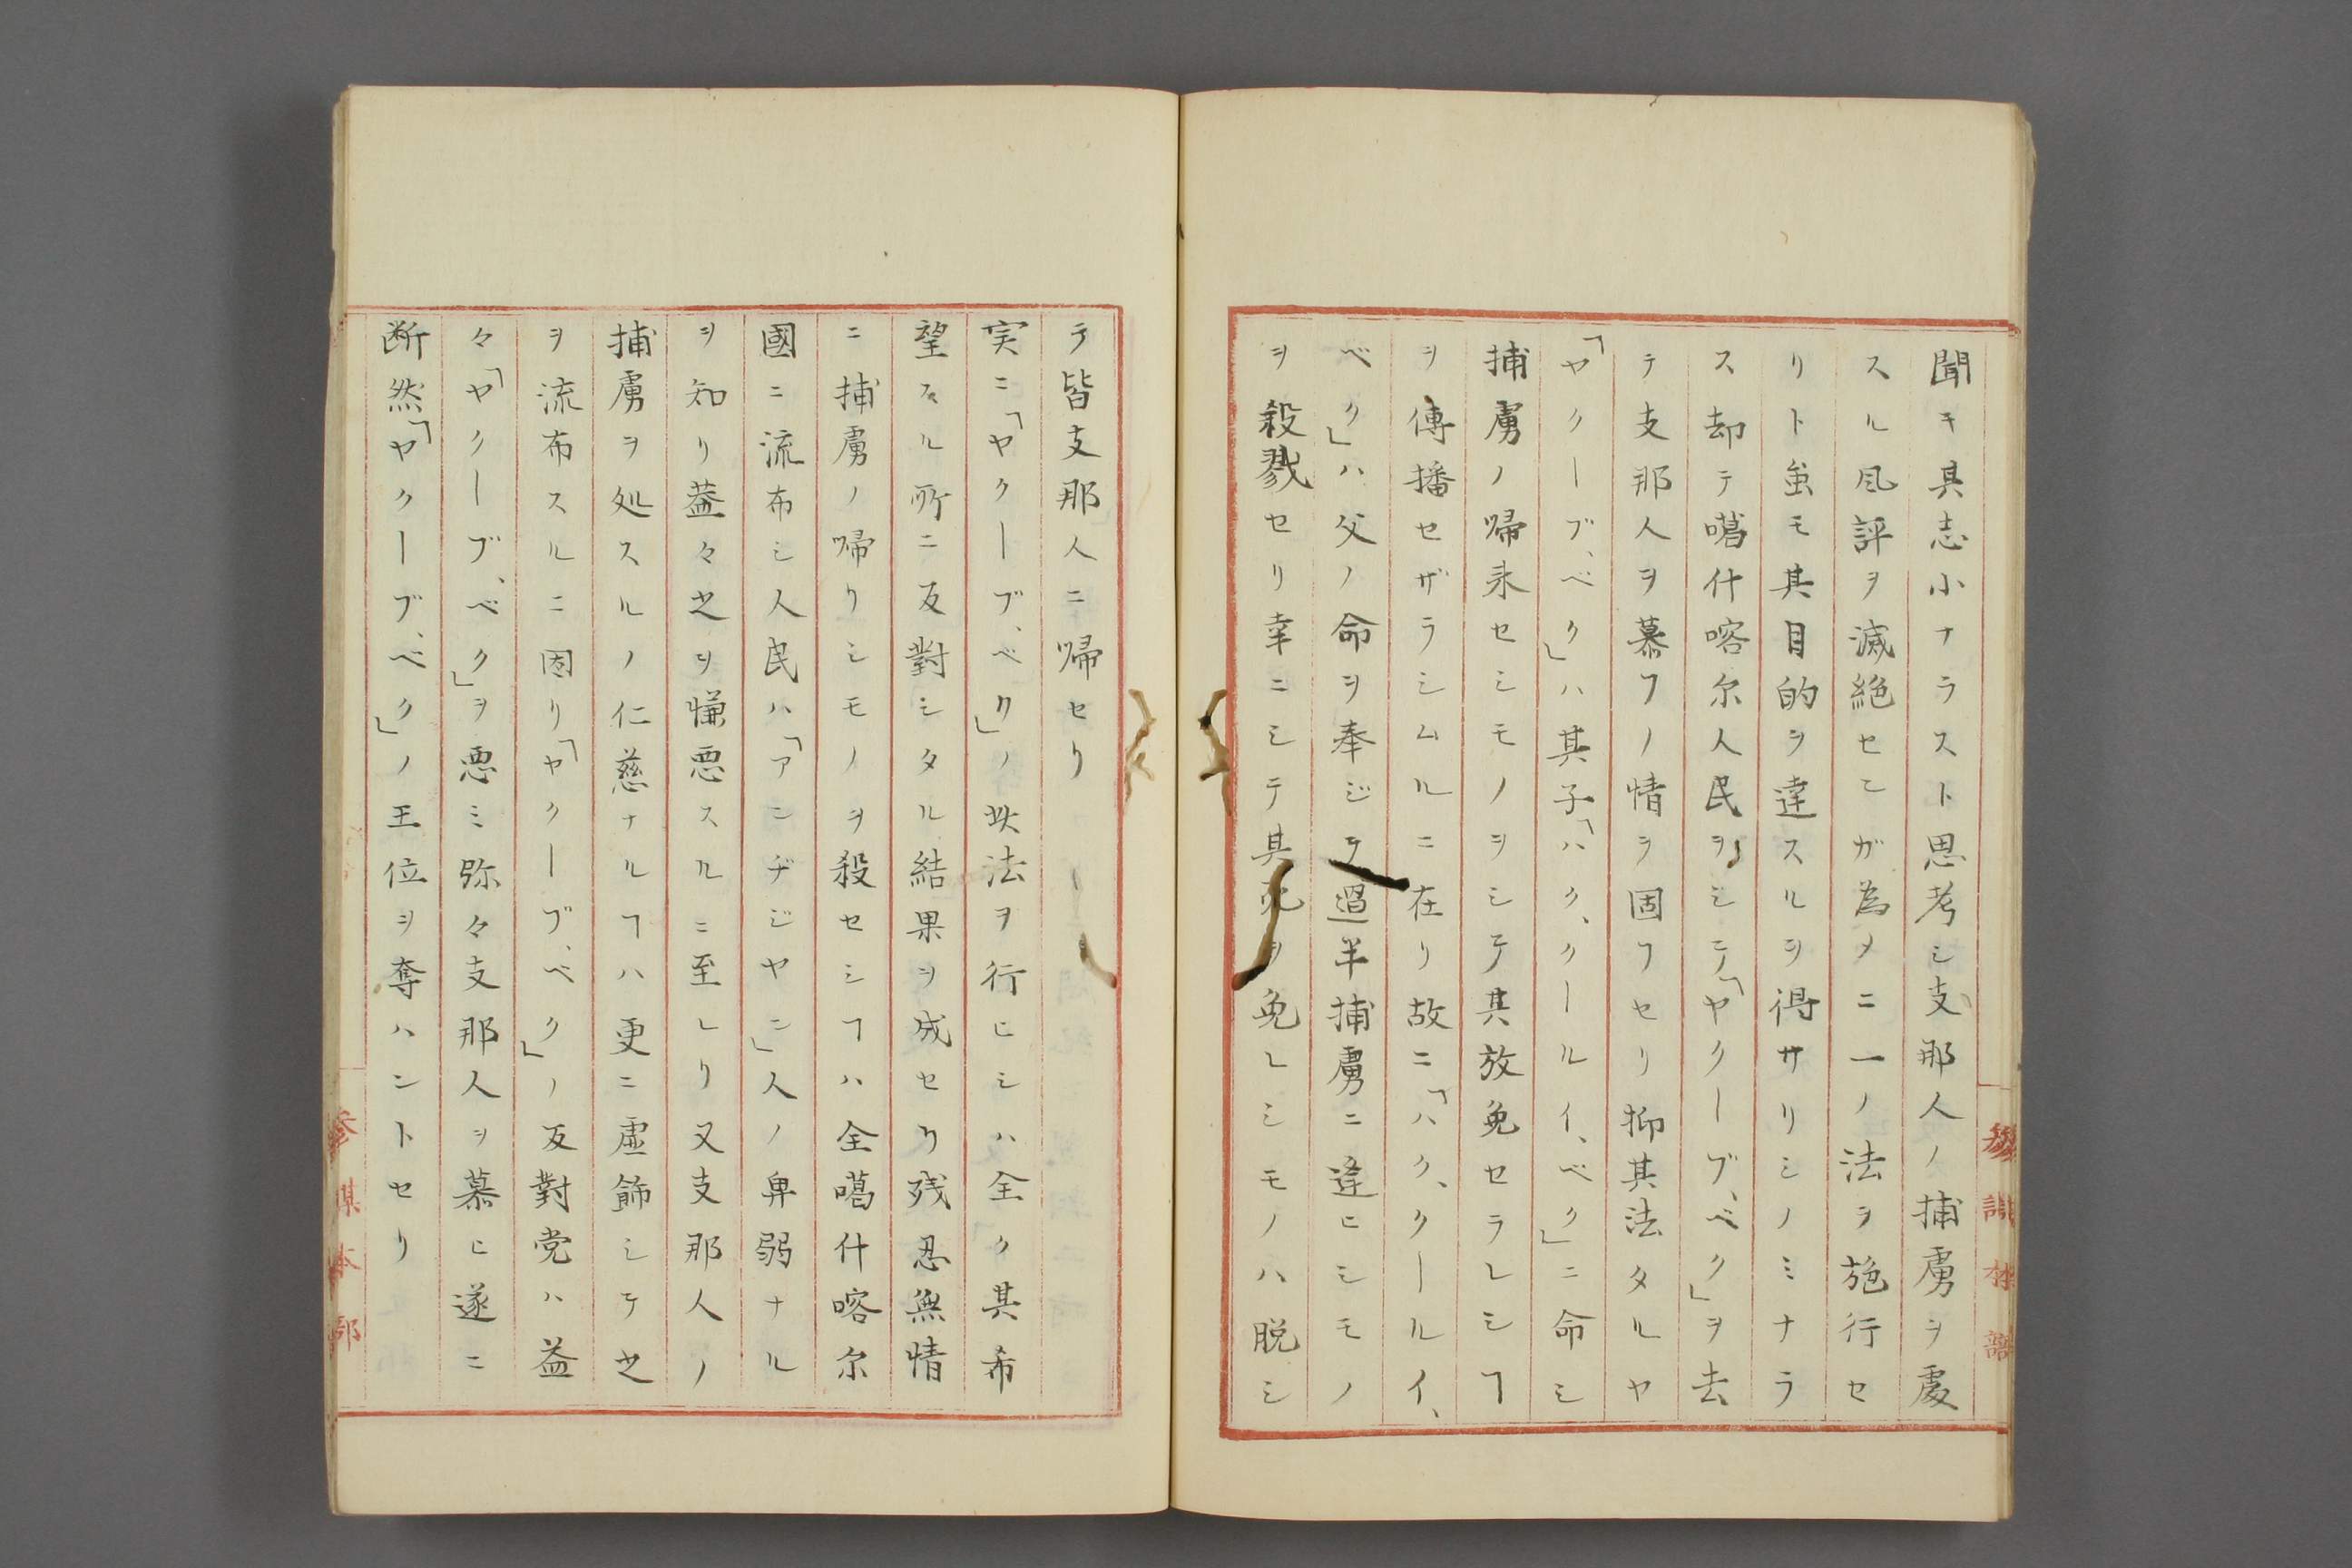 聞キ其志小ナラスト思考シ支那人ノ捕虜ヲ處
スル風評ヲ滅絶セヿガ為メニ一ノ法ヲ施行セ
リト虽モ其目的ヲ達スルヲ得サリシノミナラ
ス却テ噶什喀尔人民ヲシテ「ヤクーブ、ベク」ヲ去
テ支那人ヲ慕フノ情ヲ固フセリ抑其法タルヤ
「ヤクーブ、ベク」ハ其子「ハク、クールイ、ベク」ニ命シ
捕虜ノ帰来セシモノヲシテ其放免セラレシヿ
ヲ傳播セザラシムルニ在リ故ニ「ハク、クールイ、
ベク」ハ父ノ命ヲ奉ジテ過半捕虜ニ逢ヒシモノ
ヲ殺戮セリ幸ニシテ其死ヲ免レシモノハ脱シ
テ皆支那人ニ帰セリ
実ニ「ヤクーブ、ベク」ノ此法ヲ行ヒシハ全ク其希
望スル所ニ反對シタル結果ヲ成セリ残忍無情
ニ捕虜ノ帰リシモノヲ殺セシヿハ全噶什喀尔
國ニ流布シ人民ハ「アンヂジヤン」人ノ卑弱ナル
ヲ知リ益々之ヲ慊悪スルニ至レリ又支那人ノ
捕虜ヲ処スルノ仁慈ナルヿハ更ニ虚飾シテ之
ヲ流布スルニ因リ「ヤクーブ、ベク」ノ反對党ハ益
々「ヤクーブ、ベク」ヲ悪ミ弥々支那人ヲ慕ヒ遂ニ
断然「ヤクーブ、ベク」ノ王位ヲ奪ハントセリ
参謀本部